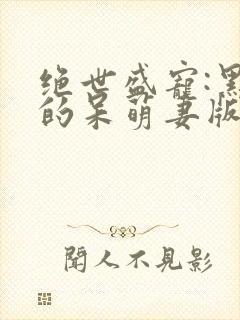 绝世盛宠:黑
的呆萌妻版
闻人不見影